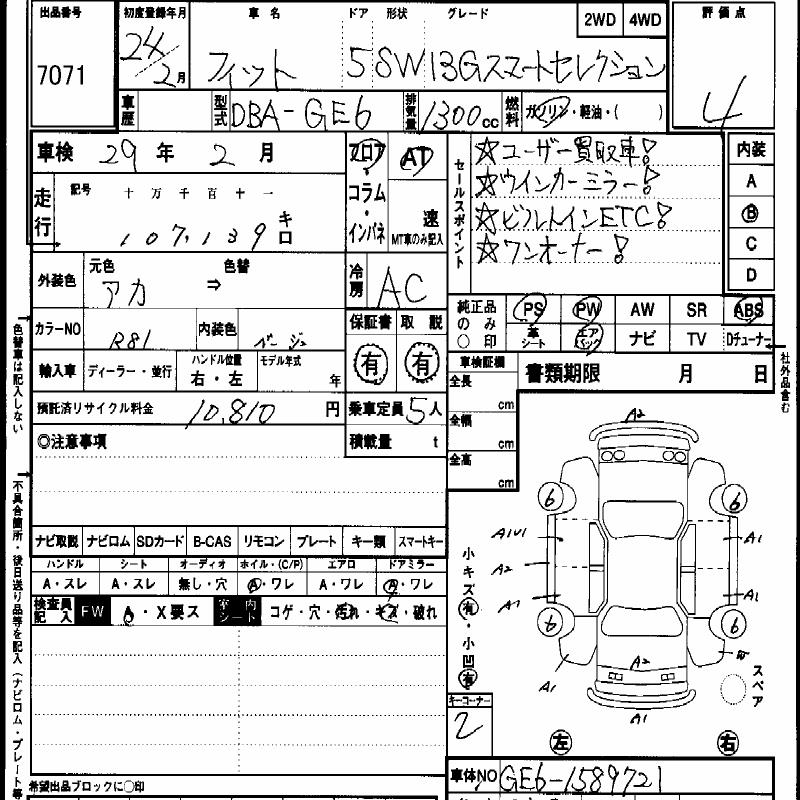 出品番号 初度登録年月 車名 ドア 形状 グレード 2WD 4WD 評価点
7071 24/2月 フィット 5 SW 13Gスマートセレクション 4
車歴 型式 DBA-GE6 排気量 1300cc 燃料 ガソリン・軽油・( )
車検 29年 2月 フロア・コラム・インパネ AT 速 MT車のみ記入
セールスポイント
☆ユーザー買取車!
☆ウインカーミラー!
☆ビルトインETC!
☆ワンオーナー!
内装
A
B
C
D
走行 記号 十万千百十一
107,139キロ
外装色 元色 アカ ⇒ 色替
冷房 AC
純正品のみ○印 PS PW AW SR ABS
革シート エアバック ナビ TV Dチューナー
カラーNO R81 内装色 ベージュ
保証書 有 取説 有
輸入車 ディーラー・並行 ハンドル位置 右・左 モデル年式 年
車検証欄 書類期限 月 日
全長 cm
全幅 cm
全高 cm
預託済リサイクル料金 10,810円 乗車定員 5人
◎注意事項 積載量 t
ナビ取説 ナビロム SDカード B-CAS リモコン プレート キー類 スマートキー
ハンドル シート オーディオ ホイル・(C/P) エアロ ドアミラー
A・スレ A・スレ 無し・穴 A・ワレ A・ワレ A・ワレ
検査員記入 FW A・X要ス 室内シート コゲ・穴・汚れ・キズ・破れ
色替車は記入しない
不具合箇所・後日送り品等を記入(ナビロム・プレート等
社外品含む
A2
6 6
A1
A2
A1
A1
A1
6 6
A1
A2
A1
小キズ有・小凹有
スペア
キーコーナー
2
左 右
車体NO GE6-1589721
希望出品ブロックに○印